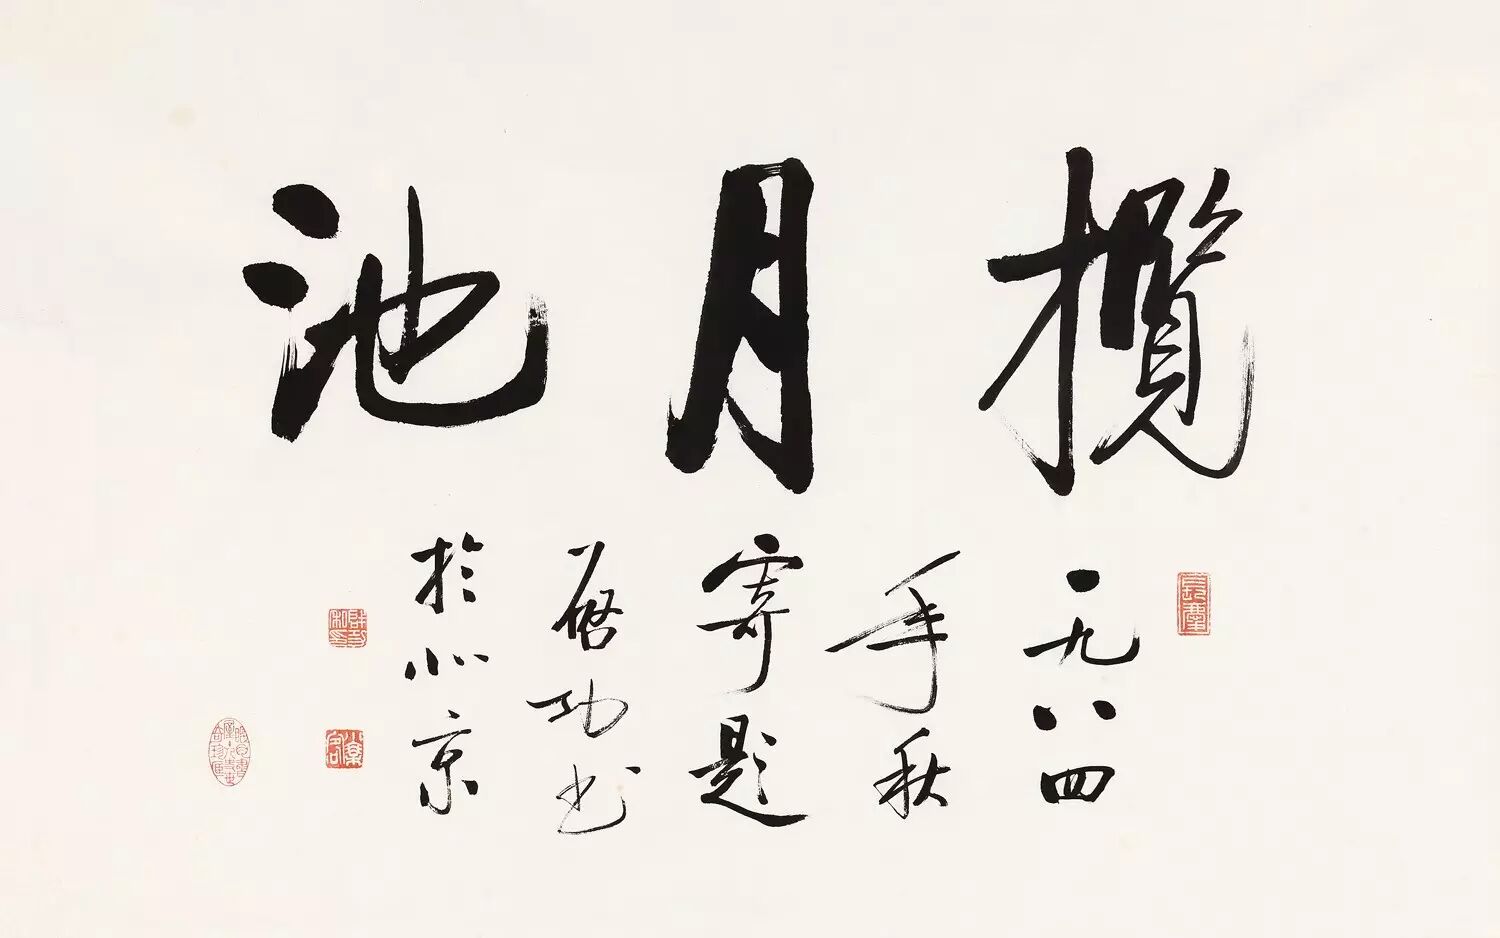 攬月池
一九八四
年秋
寄題
啟功书
於北京